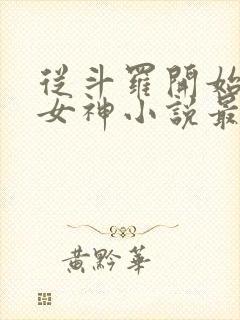 從斗羅開始
女神小說最
黃黔華